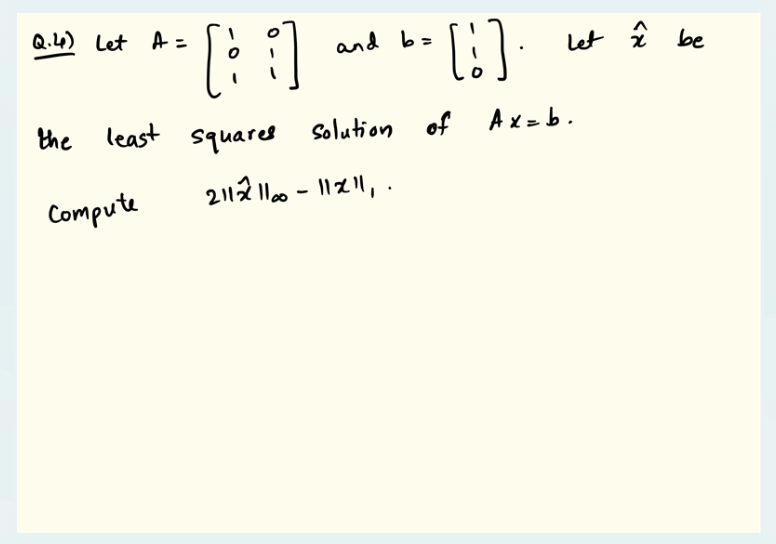 Q.4) Let A = [1 0; 0 1; 1 1] and b = [1; 1; 0]. Let x̂ be
the least squares solution of Ax = b.
Compute 2||x̂||∞ - ||x||₁.